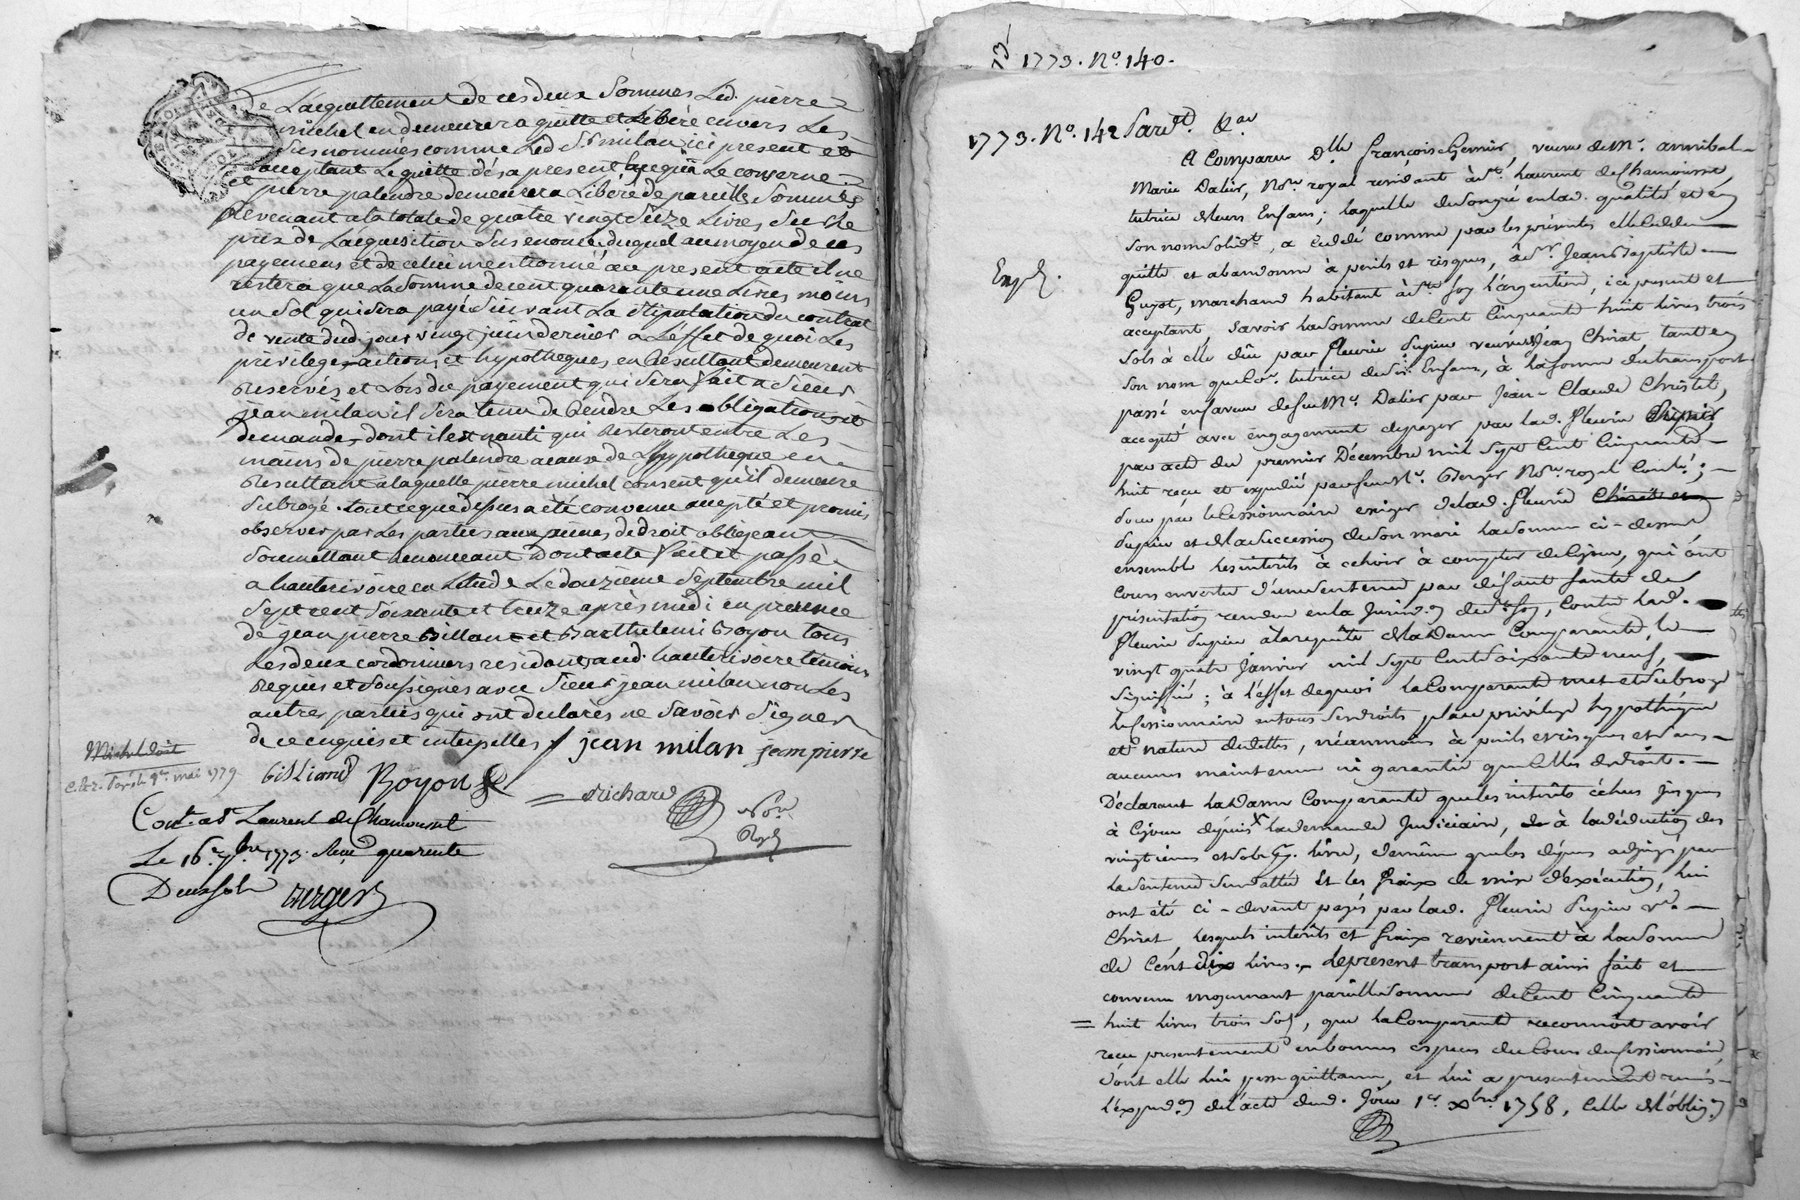 de L'acquittement de ces deux sommes Led. pierre
michel en demeurera quitte et Libéré envers Les
susnommés comme Led. Sr. milan ici present et
acceptant Le quitte dès a present Le concerne
et pierre palandre demeurera Liberé de pareille somme
Revenant a la totale de quatre vingt seize Livres sur le
prix de Lacquisition susenoncé duquel au moyen de ces
payemens et de celui mentionné au present acte il ne
restera que La somme de cent quarante une Livres moins
un sol qui sera payé suivant La stipulation du contrat
de vente dud. jour vingt juin dernier a L'effet de quoi Les
privileges actions et hypotheques en Résultant demeurent
Reservés et Lors du payement qui sera fait a Sieur
jean milan il sera tenu de Rendre Les obligations et
demandes dont il est nanti qui Resteront entre Les
mains de pierre palandre a cause de L'hypotheque en
Resultant a laquelle pierre michel consent qu'il demeure
subrogé. tout ce que dessus a été convenu accepté et promis
observer par Les parties aux peines de droit obligeant
soumettant renonceant Dont acte fait et passé
a hauterivoire en Letude Le douzieme septembre mil
sept cent soixante et treize après midi en presence
de jean pierre Billiard et Barthelemi Boyon tous
Les deux cordonniers residant aud. hauterivoire temoins
Requis et soussignés avec Sieur jean milan non Les
autres parties qui ont declarés ne savoir signer
de ce enquis et interpellés jean milan jean pierre
billiard Boyon
Michel doit
exp. 1779
richard
No.re
Royal
Con.lé a St Laurent de Chamousset
Le 16e 7bre 1773. Reçu quarente
Deux sols verger
1773. No. 140.
1773. No. 142 Pardt. &a
A Comparu Dlle. françoise Hernier, veuve de Mr. annibal
Marie Dalier, Nore. royal residant à St. Laurent de Chamousset
tutrice de leurs Enfans; laquelle de son gré en lad. qualité et en
son nom solidt., a cédé comme par les présentes elle cède
quitte et abandonne à perils et risques, à Sr. Jean Baptiste
Expé.
Guyot, marchand habitant à Ste. foy l'argentiere, ici present et
acceptant, savoir la somme de Cent Cinquante huit livres trois
sols à elle düe par fleurie Dupin veuve de Jean Chirat, tant en
son nom que comme tutrice de ses Enfans, à la forme du transport
passé en faveur de feu Mr. Dalier par Jean-Claude Christel,
accepté avec engagement de payer par lad. fleurie Dupin
par acte du premier Décembre mil sept Cent Cinquante
huit reçu et expédié par feu Mr. Berger Nore. royal
pour par le Cessionnaire exiger de lad. fleurie
Dupin et de la succession de son mari la somme ci-dessus
ensemble les interêts à echoir à compter de ce jour, qui ont
cours en vertu d'une sentence par défaut faute de
présentation rendue en la Jurisdon. de Ste. foy, Contre lad.
fleurie Dupin à la requête de la Dame Comparante, le
vingt quatre Janvier mil sept Cent soixante neuf,
signifiée; à l'effet de quoi la Comparante met et subroge
le Cessionnaire en tous ses droits place privilege hypothèque
et nature de dettes, néanmoins à perils et risques et sans
aucune maintenue ni garantie quelle de droit.
Déclarant la Dame Comparante que les intérêts échus jusques
à ce jour depuis la demande Judiciaire, à la déduction des
vingtièmes et sols pr. livre, de même que les dépens adjugés par
la sentence susdattée et les fraix de mise d'exécution, lui
ont été ci-devant payés par lad. fleurie Dupin ve.
Chirat, lesquels interêts et fraix reviennent à la somme
de Cent dix livres. Le present transport ainsi fait et
convenu moyennant pareille somme de Cent Cinquante
huit livres trois sols, que la Comparante reconnoit avoir
reçue presentement en bonnes especes du Cours du Cessionnaire
dont elle lui passe quittance, et lui a presentement remis
l'expedon. de l'acte dud. jour 1er. xbre 1758, Celle de l'oblig.on